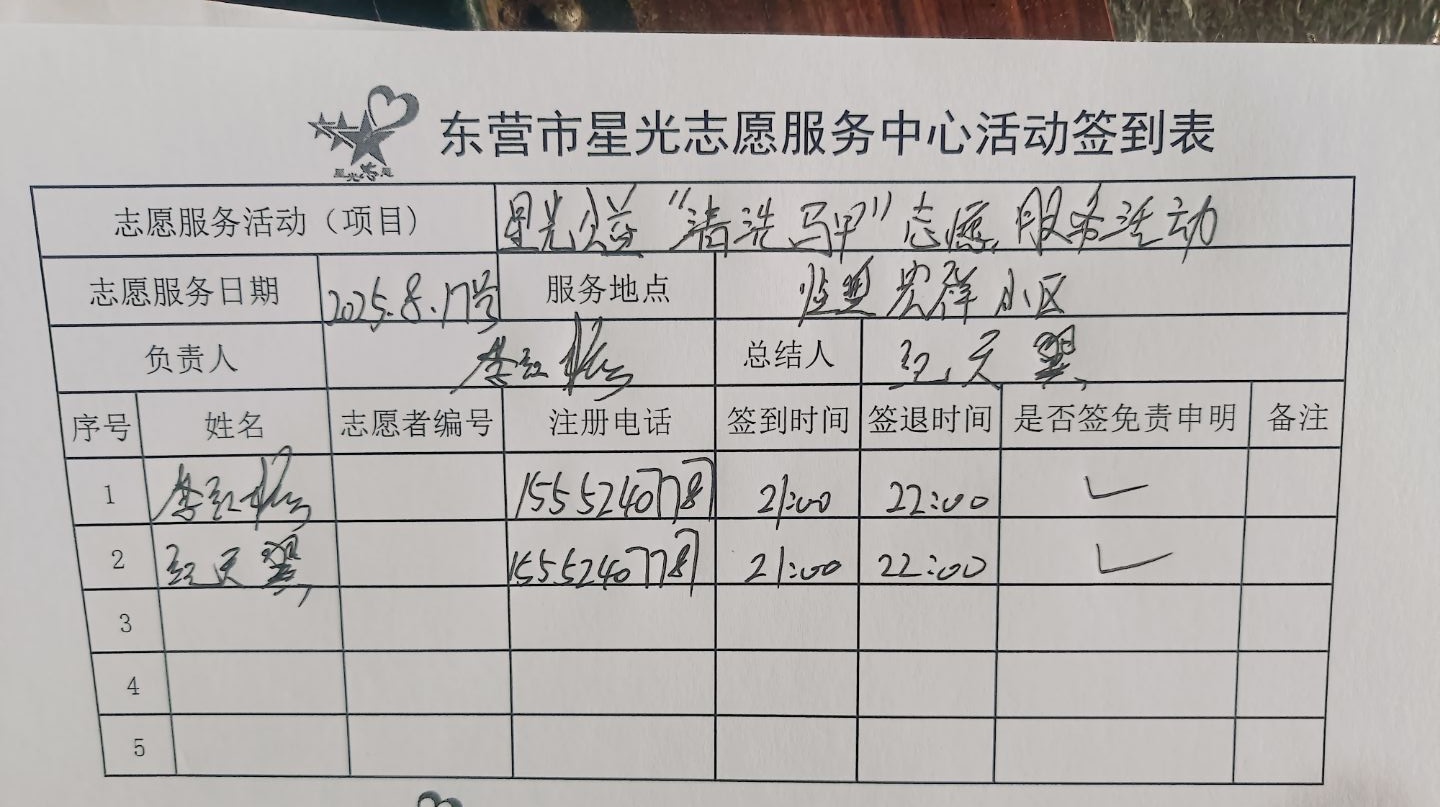 星光志愿
东营市星光志愿服务中心活动签到表
志愿服务活动（项目） 星光公益“清洗马甲”志愿服务活动
志愿服务日期 2025.8.17号 服务地点 小区
负责人 李红 总结人 纪天翼
序号 姓名 志愿者编号 注册电话 签到时间 签退时间 是否签免责申明 备注
1 李红 15552407787 21:00 22:00 ✓
2 纪天翼 15552407787 21:00 22:00 ✓
3
4
5